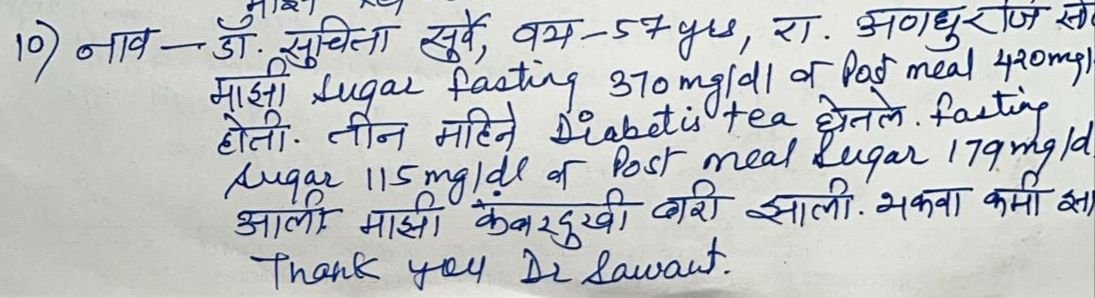 10) नाव - डॉ. सुचिता सुर्वे, वय - 57 yrs, रा.
माझी Sugar fasting 370 mg/dl व Post meal 420 mg/
होती. तीन महिने Diabetis tea घेतले. fasting
Sugar 115 mg/dl व Post meal Sugar 179 mg/d
आली माझी कंबरदुखी बरी झाली. थकवा कमी झा
Thank you Dr Sawant.